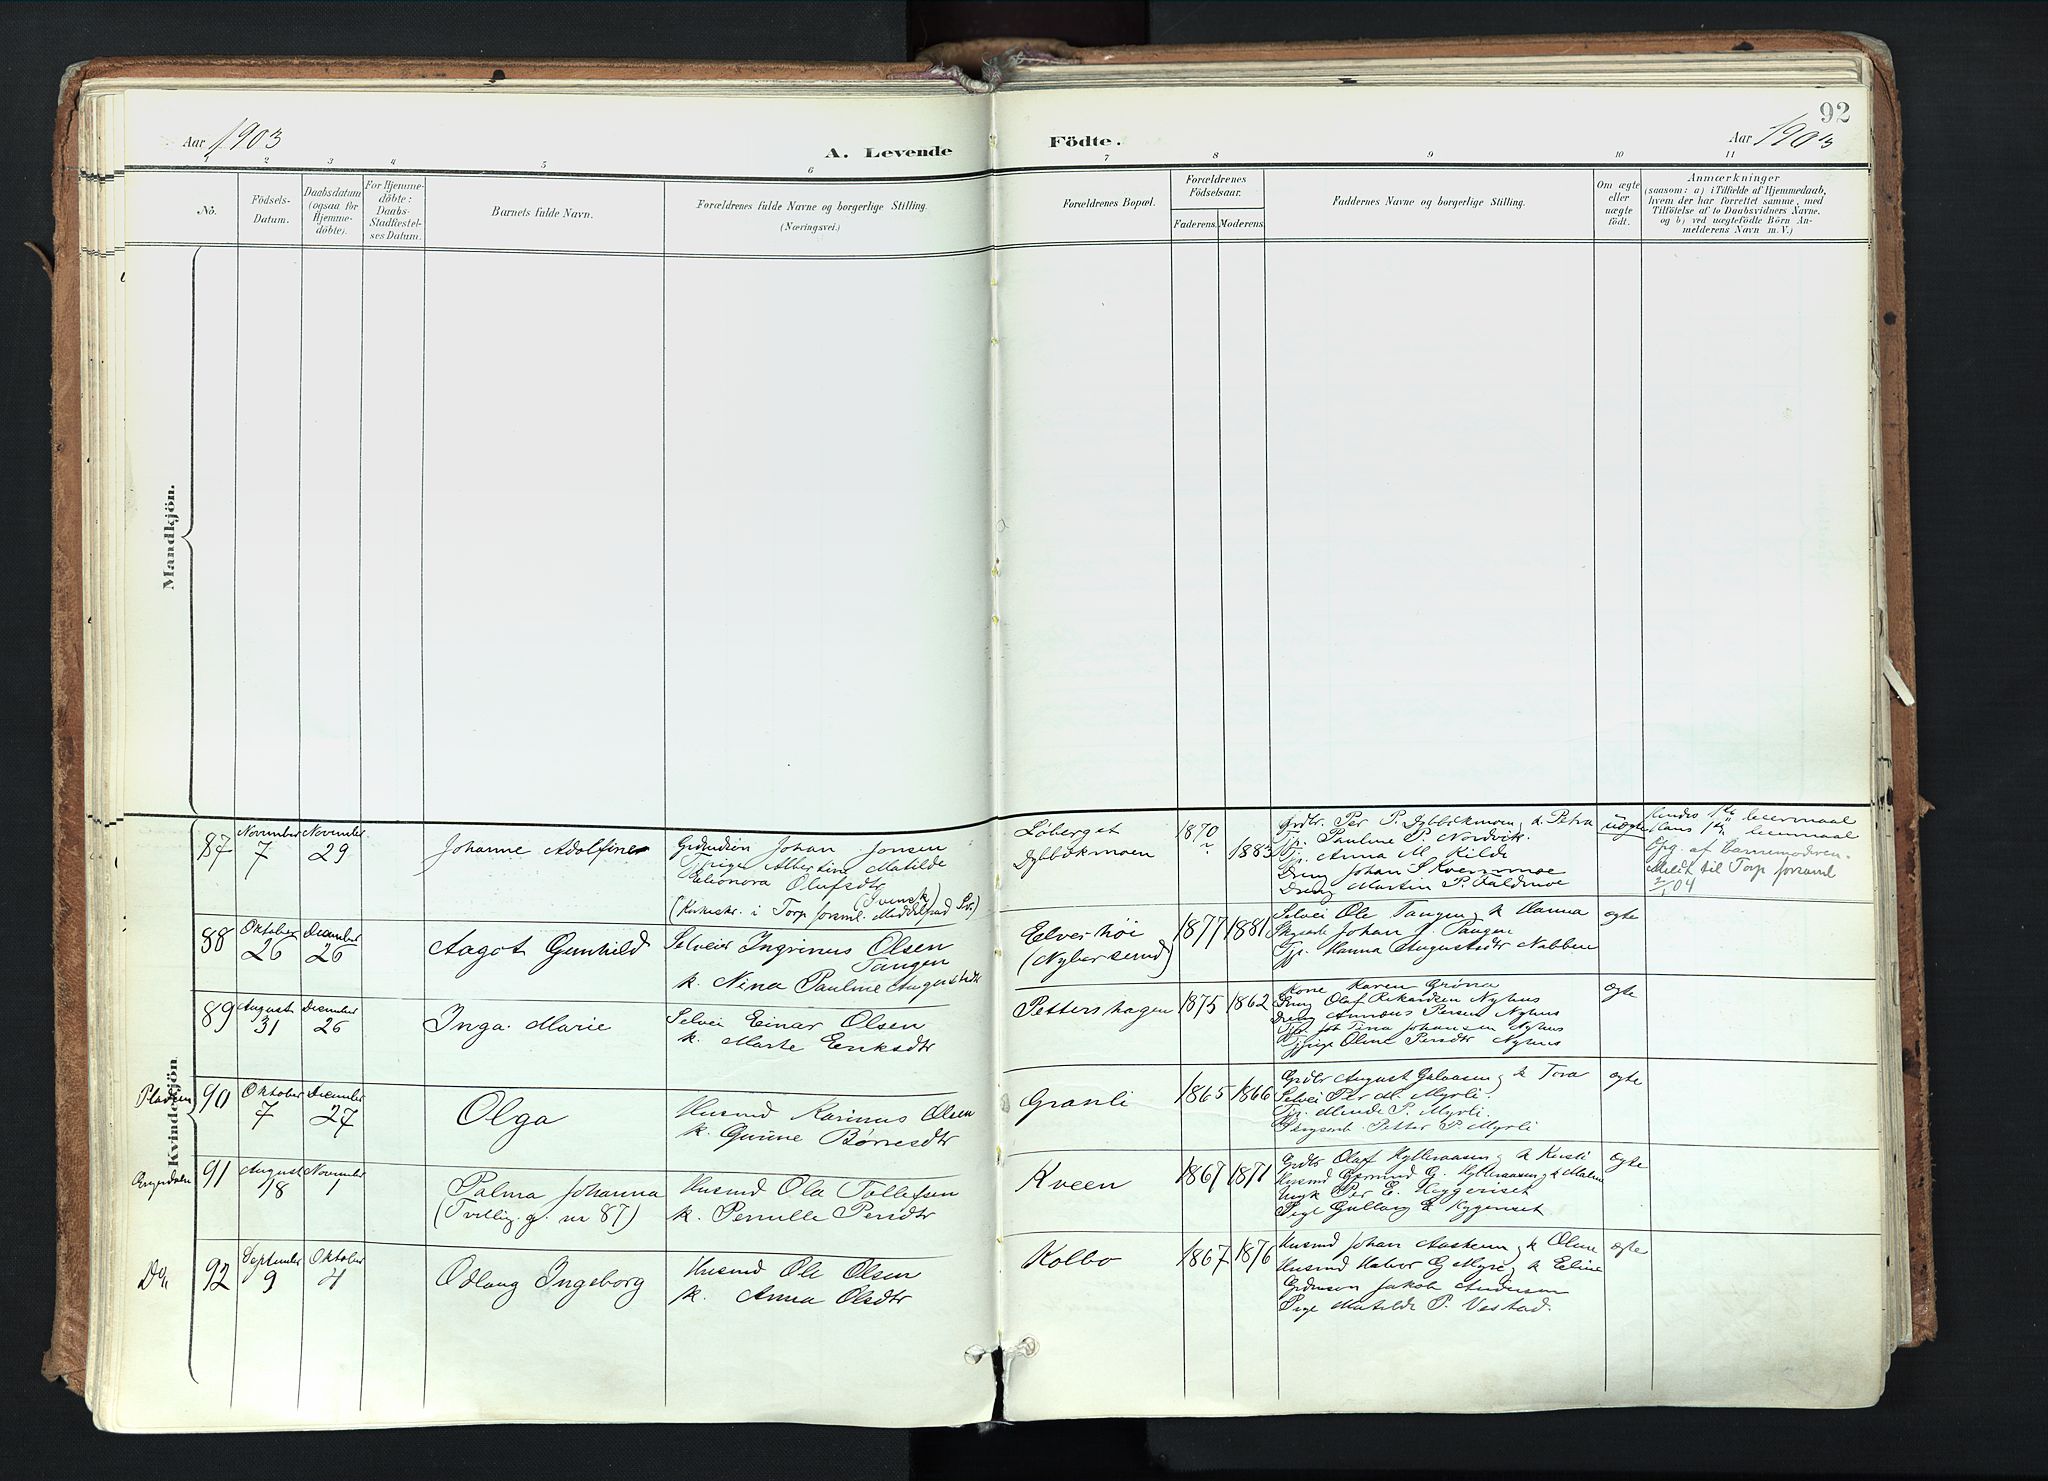 92
Aar 1903
A. Levende
Födte.
Aar 1903
1 2 3 4 5 6 7 8 9 10 11
No.
Födsels-
Datum.
Daabsdatum
(ogsaa for
Hjemme-
döbte).
For Hjemme-
döbte:
Daabs-
Stadfæstel-
ses Datum.
Barnets fulde Navn.
Forældrenes fulde Navne og borgerlige Stilling
(Næringsvei.)
Forældrenes Bopæl.
Forældrenes
Födselsaar.
Faderens.
Moderens
Faddernes Navne og borgerlige Stilling.
Om ægte
eller
uægte
födt.
Anmærkninger
(saasom: a) i Tilfælde af Hjemmedaab,
hvem der har forrettet samme, med
Tilföielse af to Daabsvidners Navne,
og b) ved uægtefödte Börn An-
melderens Navn m. V.)
Mandkjön.
Kvindekjön
87
November
7
November
29
Johanne Adolfine
Grdmdsön Johan Jonsen
Tjpige Albertine Matilde
Eleonora Olufsdtr
(Svensk)
(Kirkeskr. i Torp forsml. Meddelpad Sv.)
Löberget
Dybbækmoen
1870
1883
Grdbr. Per P. Dybbækmoen, k. Petra
Tjp. Pauline P. Nordvik.
Tjp. Anna M. Kilde
Dreng Johan S Kvernmoe
Dreng Martin P. Faldmoe
uægte
hendes 1ste leiermaal
hans 1ste leiermaal
Opg. af barnemodren.
Meldt til Torp forsaml
2/1 04
88
Oktober
26
December
26
Aagot Gunhild
Selveier Ingrinus Olsen
Tangen
k. Nina Pauline Augustadtr
Elveshöi
(Nybersund)
1877
1881
Selvei Ole Tangen, k Hanna
Skysarb Johan J. Tangen
Tjp. Hanna Augustadtr Nabben
ægte
89
August
31
December
26
Inga Marie
Selvei Einar Olsen
k. Marte Eriksdtr
Pettershagen
1875
1862
Kone Karen Gröna
Dreng Olaf Rikardsen Nyhus
Dreng Annæus Persen Nyhus
Tina Johansen Nyhus
Tjpige Oline Persdtr Nyhus
ægte
Pladsen
90
Oktober
7
December
27
Olga
Husmd Karinus Olsen
k. Gunine Börresdtr
Granli
1865
1866
Grdbr August Galaasen, k Tora
Selvei Per M. Myrli.
Tjp. Minde P. Myrli.
Skogsarb. Petter P. Myrli
ægte
Engerdalen
91
August
18
November
1
Palma Johanna
(Tvilling g. nr 87)
Husmd Ola Tollefsen
k. Pernille Persdtr
Kveen
1867
1871
Grdbr Olaf Hylleraasen, k Kirsti
Husmd Gudmund G. Hylleraasen, k Malene
Ungk Per E. Hyggeriset
Pige Gullaug E Hyggeriset
ægte
Do.
92
September
9
Oktober
4
Odlaug Ingeborg
Husmd Ole Olsen
k. Anna Olsdtr
Kolbo
1867
1876
Husmd Johan Aasheim, k Oline
Husmd Halvor G Myre, k Eline
Grdmdsön Jakob Andersen
Pige Matilde P. Vestad.
ægte